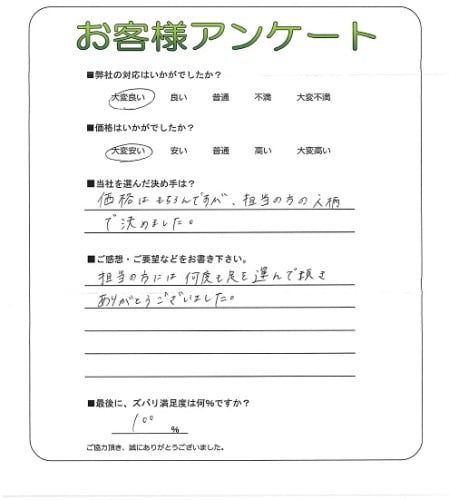 お客様アンケート
■弊社の対応はいかがでしたか？
大変良い 良い 普通 不満 大変不満
■価格はいかがでしたか？
大変安い 安い 普通 高い 大変高い
■当社を選んだ決め手は？
価格はもちろんですが、担当の方の人柄
で決めました。
■ご感想・ご要望などをお書き下さい。
担当の方には何度も足を運んで頂き
ありがとうございました。
■最後に、ズバリ満足度は何％ですか？
100 ％
ご協力頂き、誠にありがとうございました。